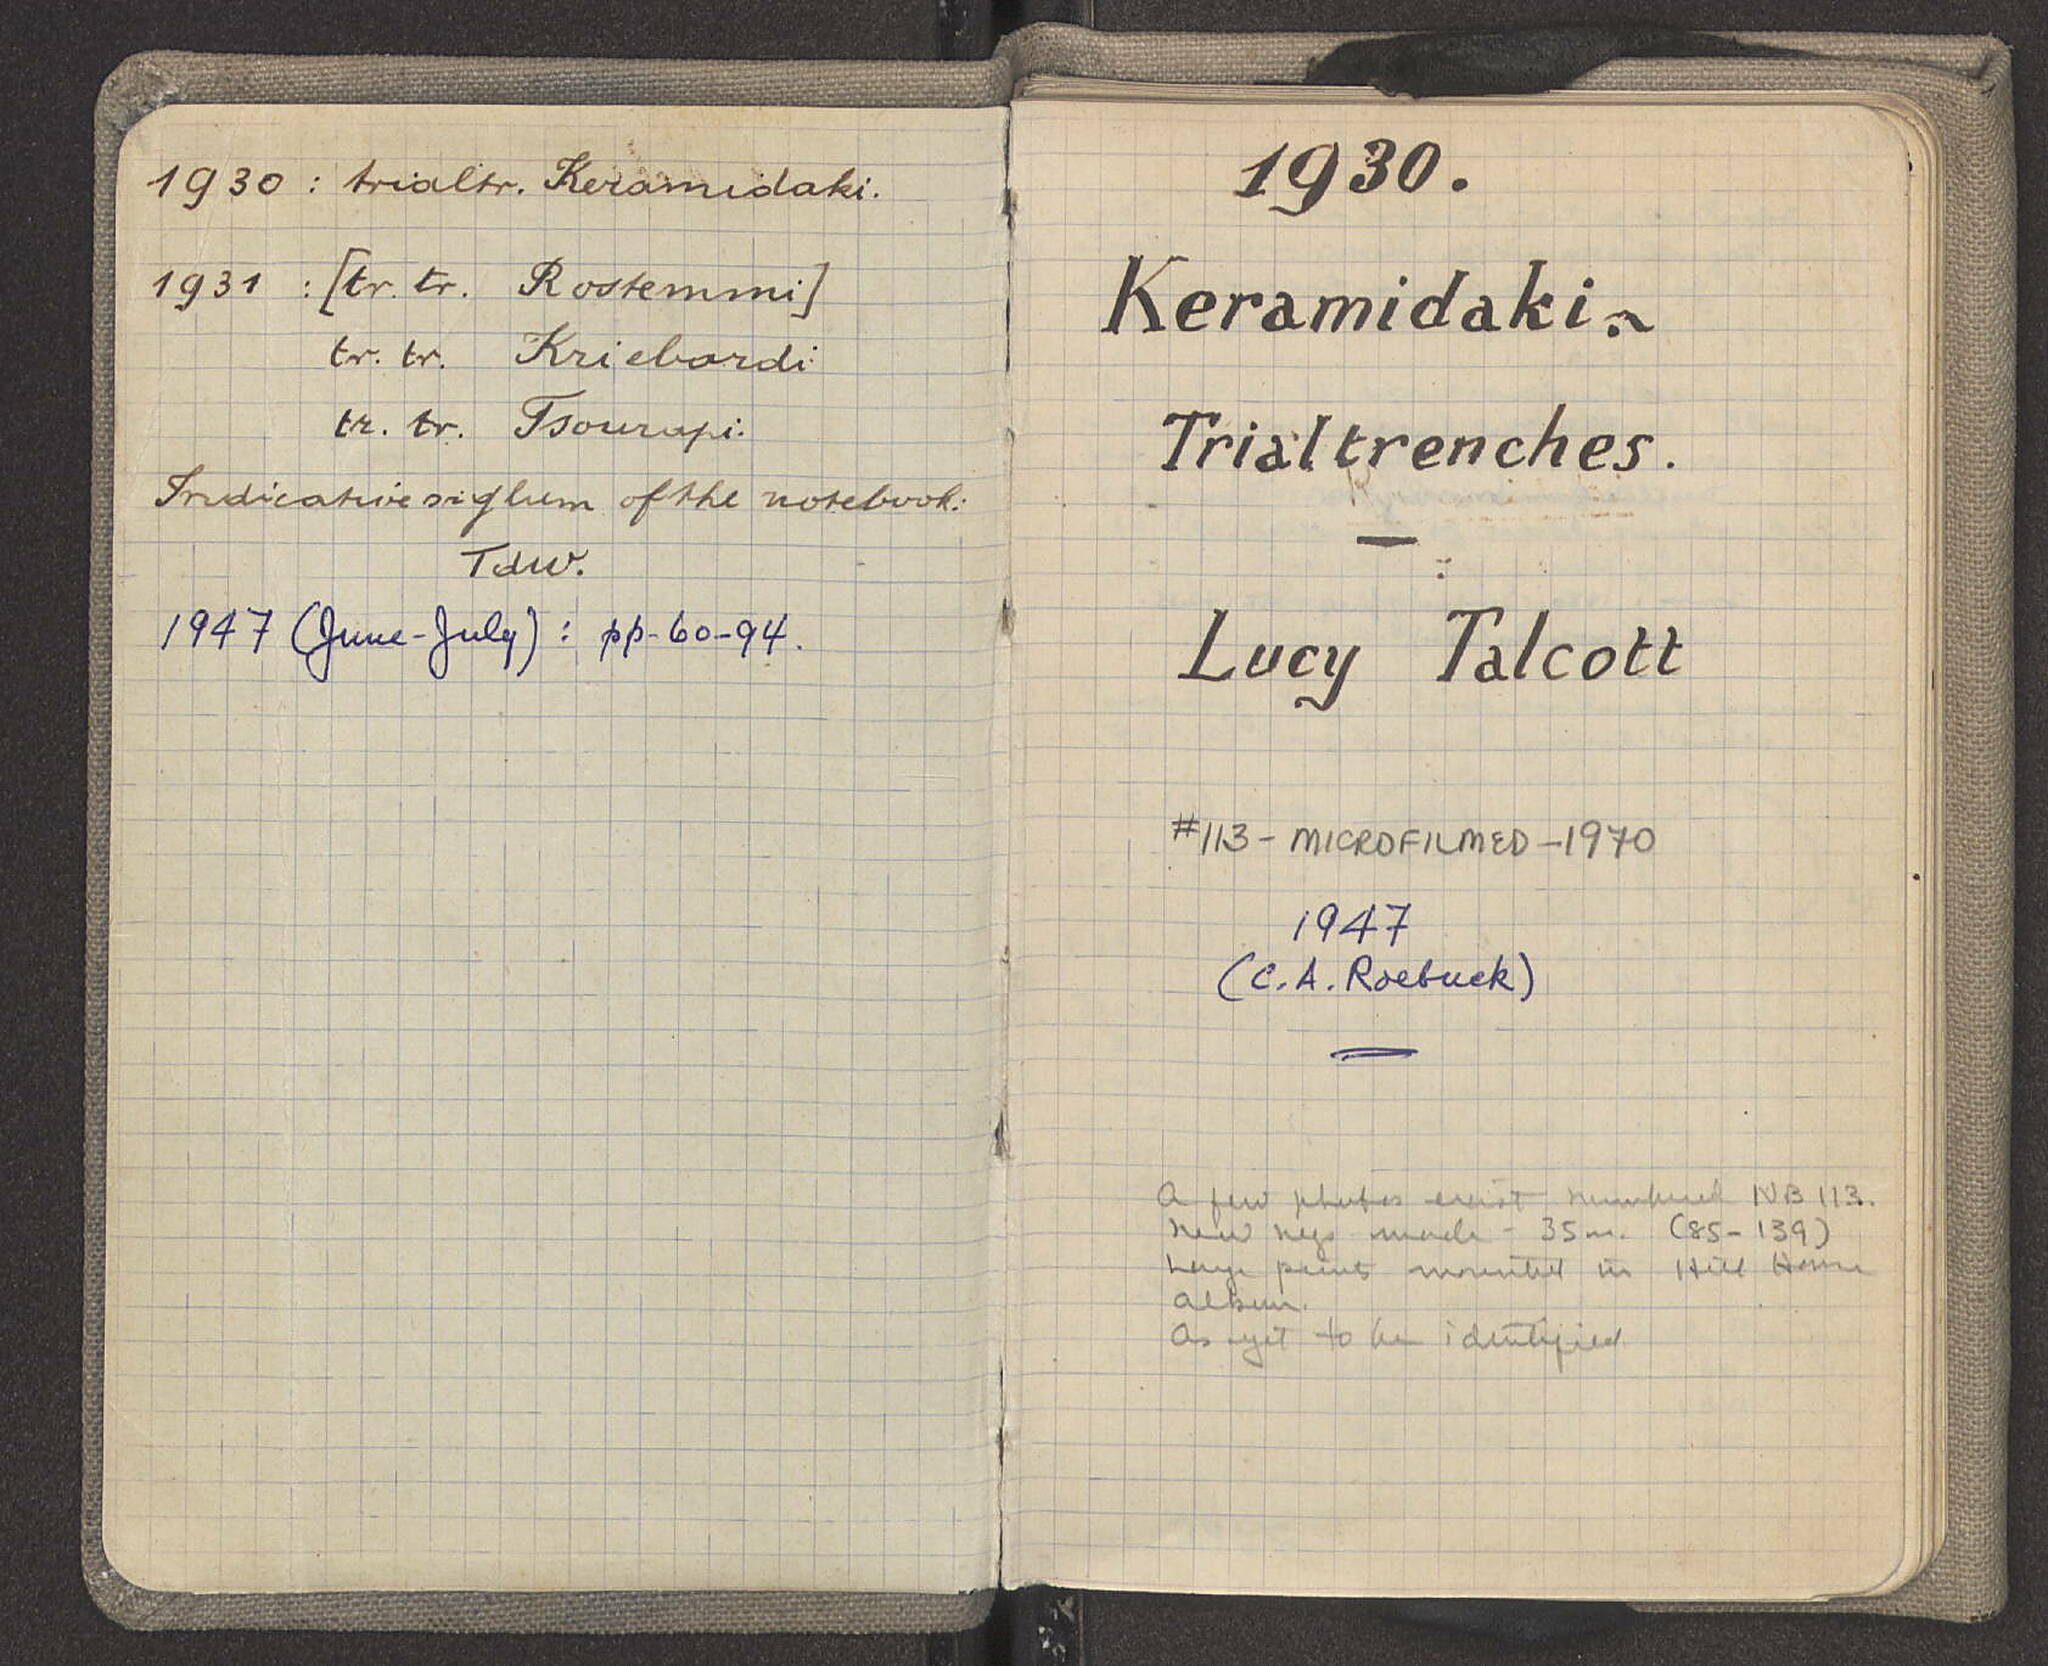 1930 : trialtr. Keramidaki.
1931 : [tr. tr. Rostemmi]
tr. tr. Kriebardi
tr. tr. Tsourapi.
Indicative siglum of the notebook:
Tdw.
1947 (June-July) : pp-60-94.
1930.
Keramidaki.
Trialtrenches.
—
Lucy Talcott
#113 - MICROFILMED - 1970
1947
(C.A. Roebuck)
A few photos exist numbered NB 113.
New negs made - 35m. (85-139)
Large prints mounted in Hill House
album.
As yet to be identified